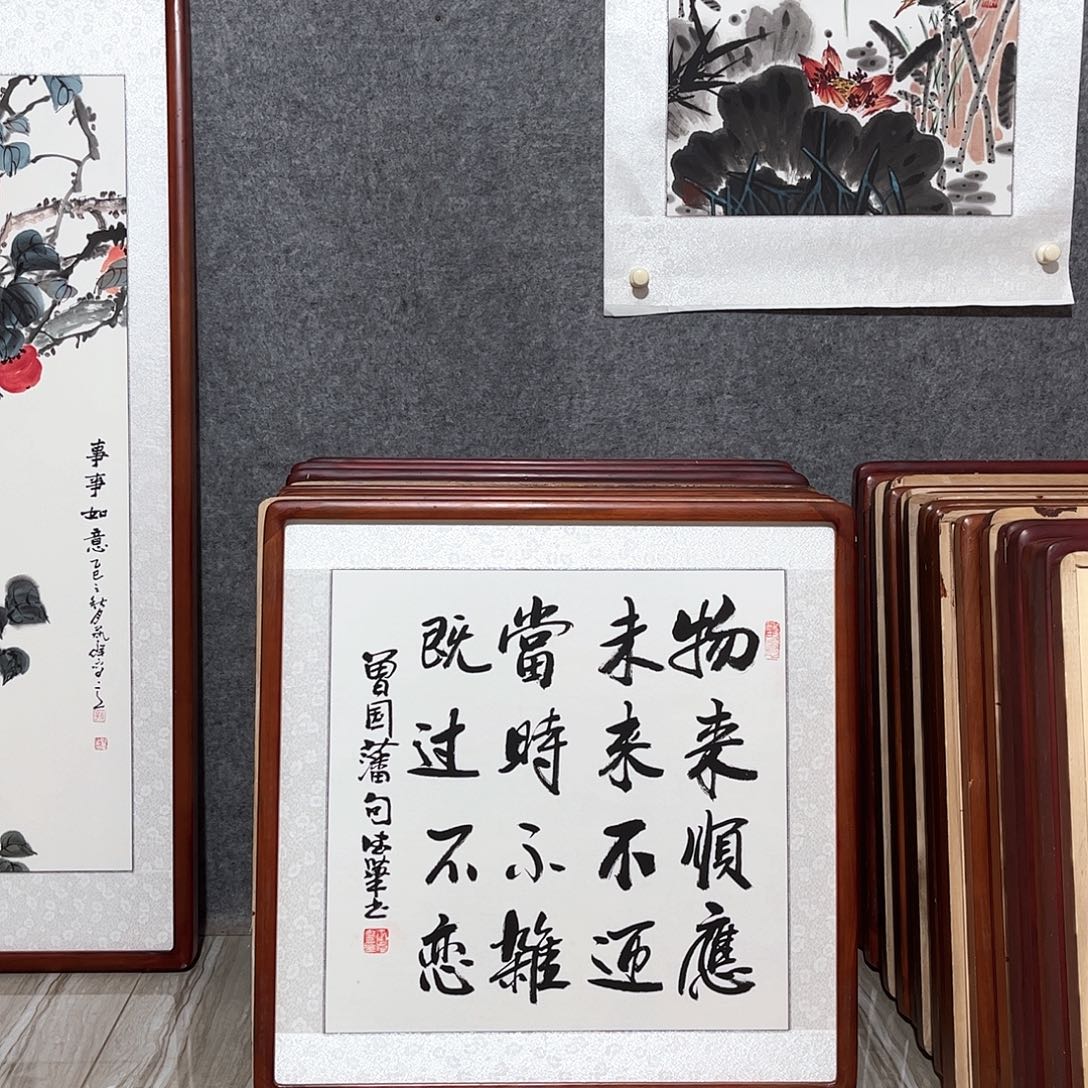 物来順應
未来不迎
當時不雜
既过不恋
曾国藩句 華书
事事如意 乙巳之秋月